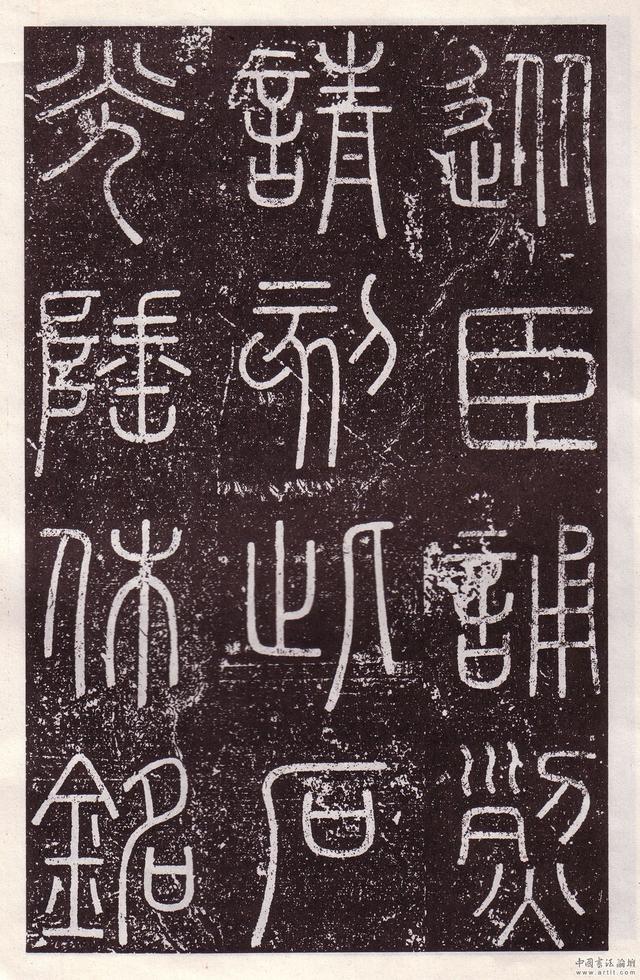 從臣誦烈
請刻此石
光陲休銘
中國書法論壇
www.artit.com